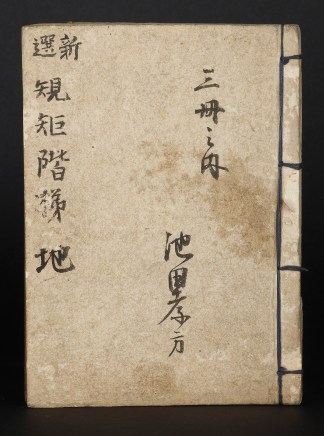 新選 規矩階梯 地
三冊之内
池田孝方